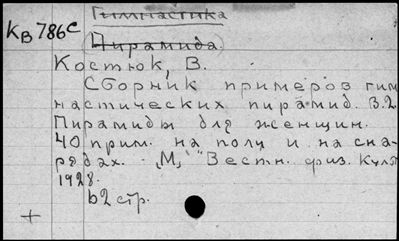 Гимнастика
Кв 786с
Пирамида.
Костюк, В.
Сборник примеров гим
настических пирамид. В.2.
Пирамиды для женщин.
40 прим. на полу и на сна-
рядах. - „М," "Вестн. физ. Культ
1928.
62 стр.
+